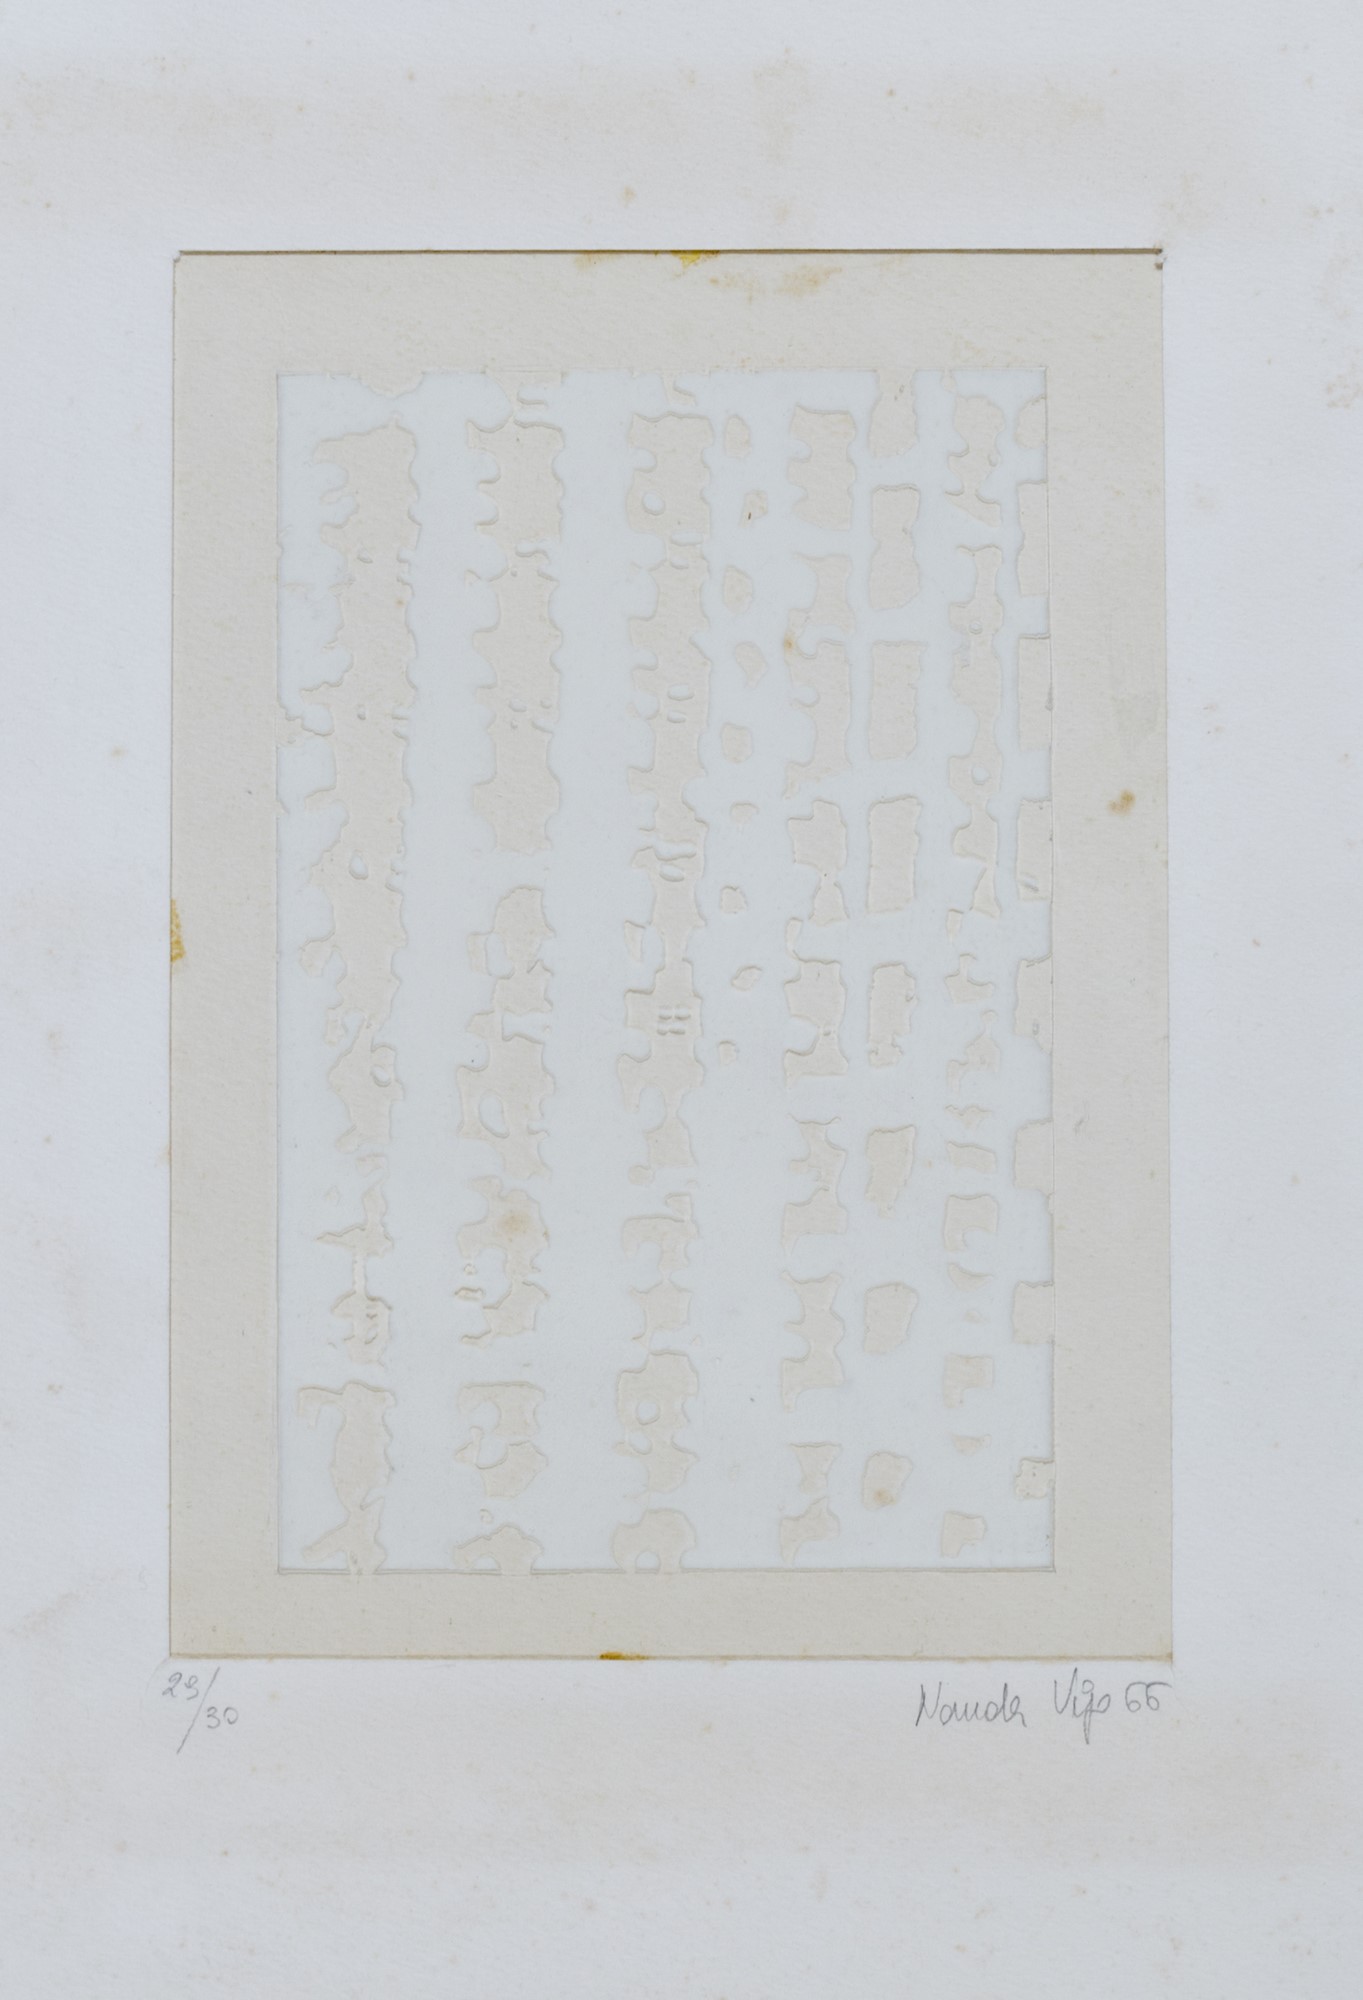 29/30
Nanda Vigo 66